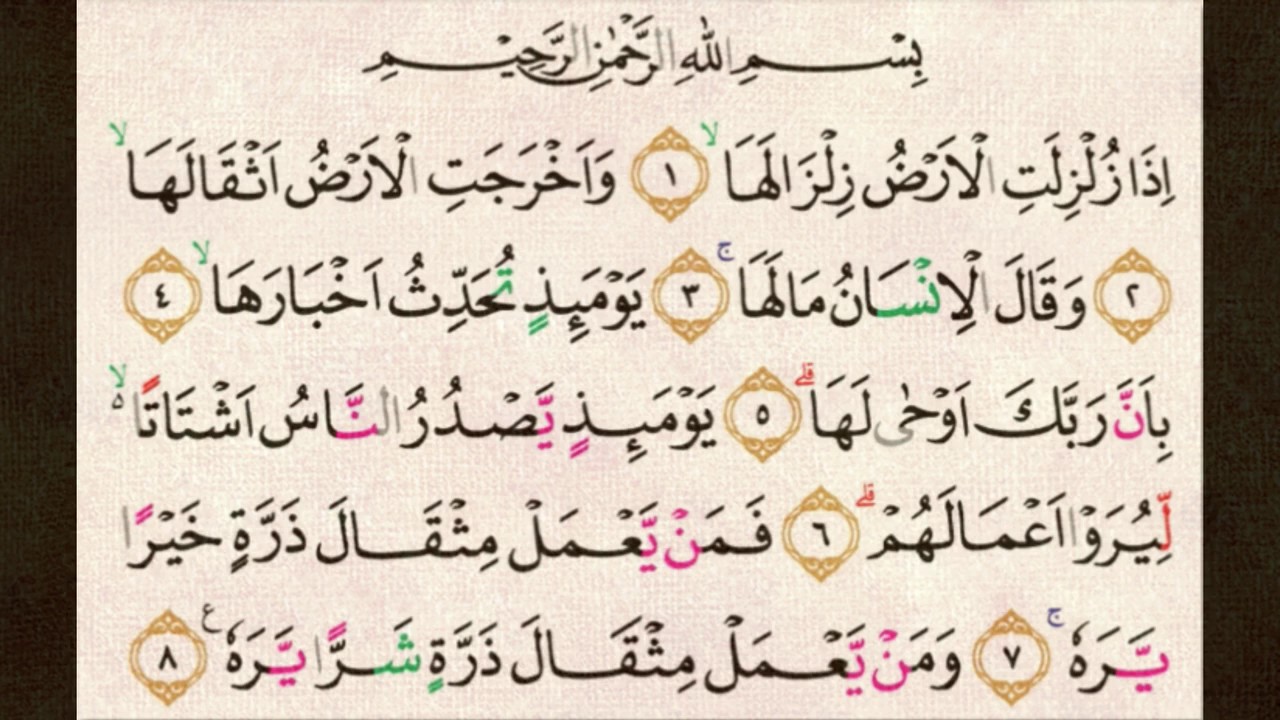 بِسْمِ اللّٰهِ الرَّحْمٰنِ الرَّحِيْمِ
اِذَا زُلْزِلَتِ الْاَرْضُ زِلْزَالَهَا ۙ ١ وَاَخْرَجَتِ الْاَرْضُ اَثْقَالَهَا ۙ
٢ وَقَالَ الْاِنْسَانُ مَا لَهَا ۚ ٣ يَوْمَىِٕذٍ تُحَدِّثُ اَخْبَارَهَا ۙ ٤
بِاَنَّ رَبَّكَ اَوْحٰى لَهَا ۗ ٥ يَوْمَىِٕذٍ يَّصْدُرُ النَّاسُ اَشْتَاتًا ەۙ
لِّيُرَوْا اَعْمَالَهُمْ ۗ ٦ فَمَنْ يَّعْمَلْ مِثْقَالَ ذَرَّةٍ خَيْرًا
يَّرَهٗ ۚ ٧ وَمَنْ يَّعْمَلْ مِثْقَالَ ذَرَّةٍ شَرًّا يَّرَهٗ ࣖ ٨